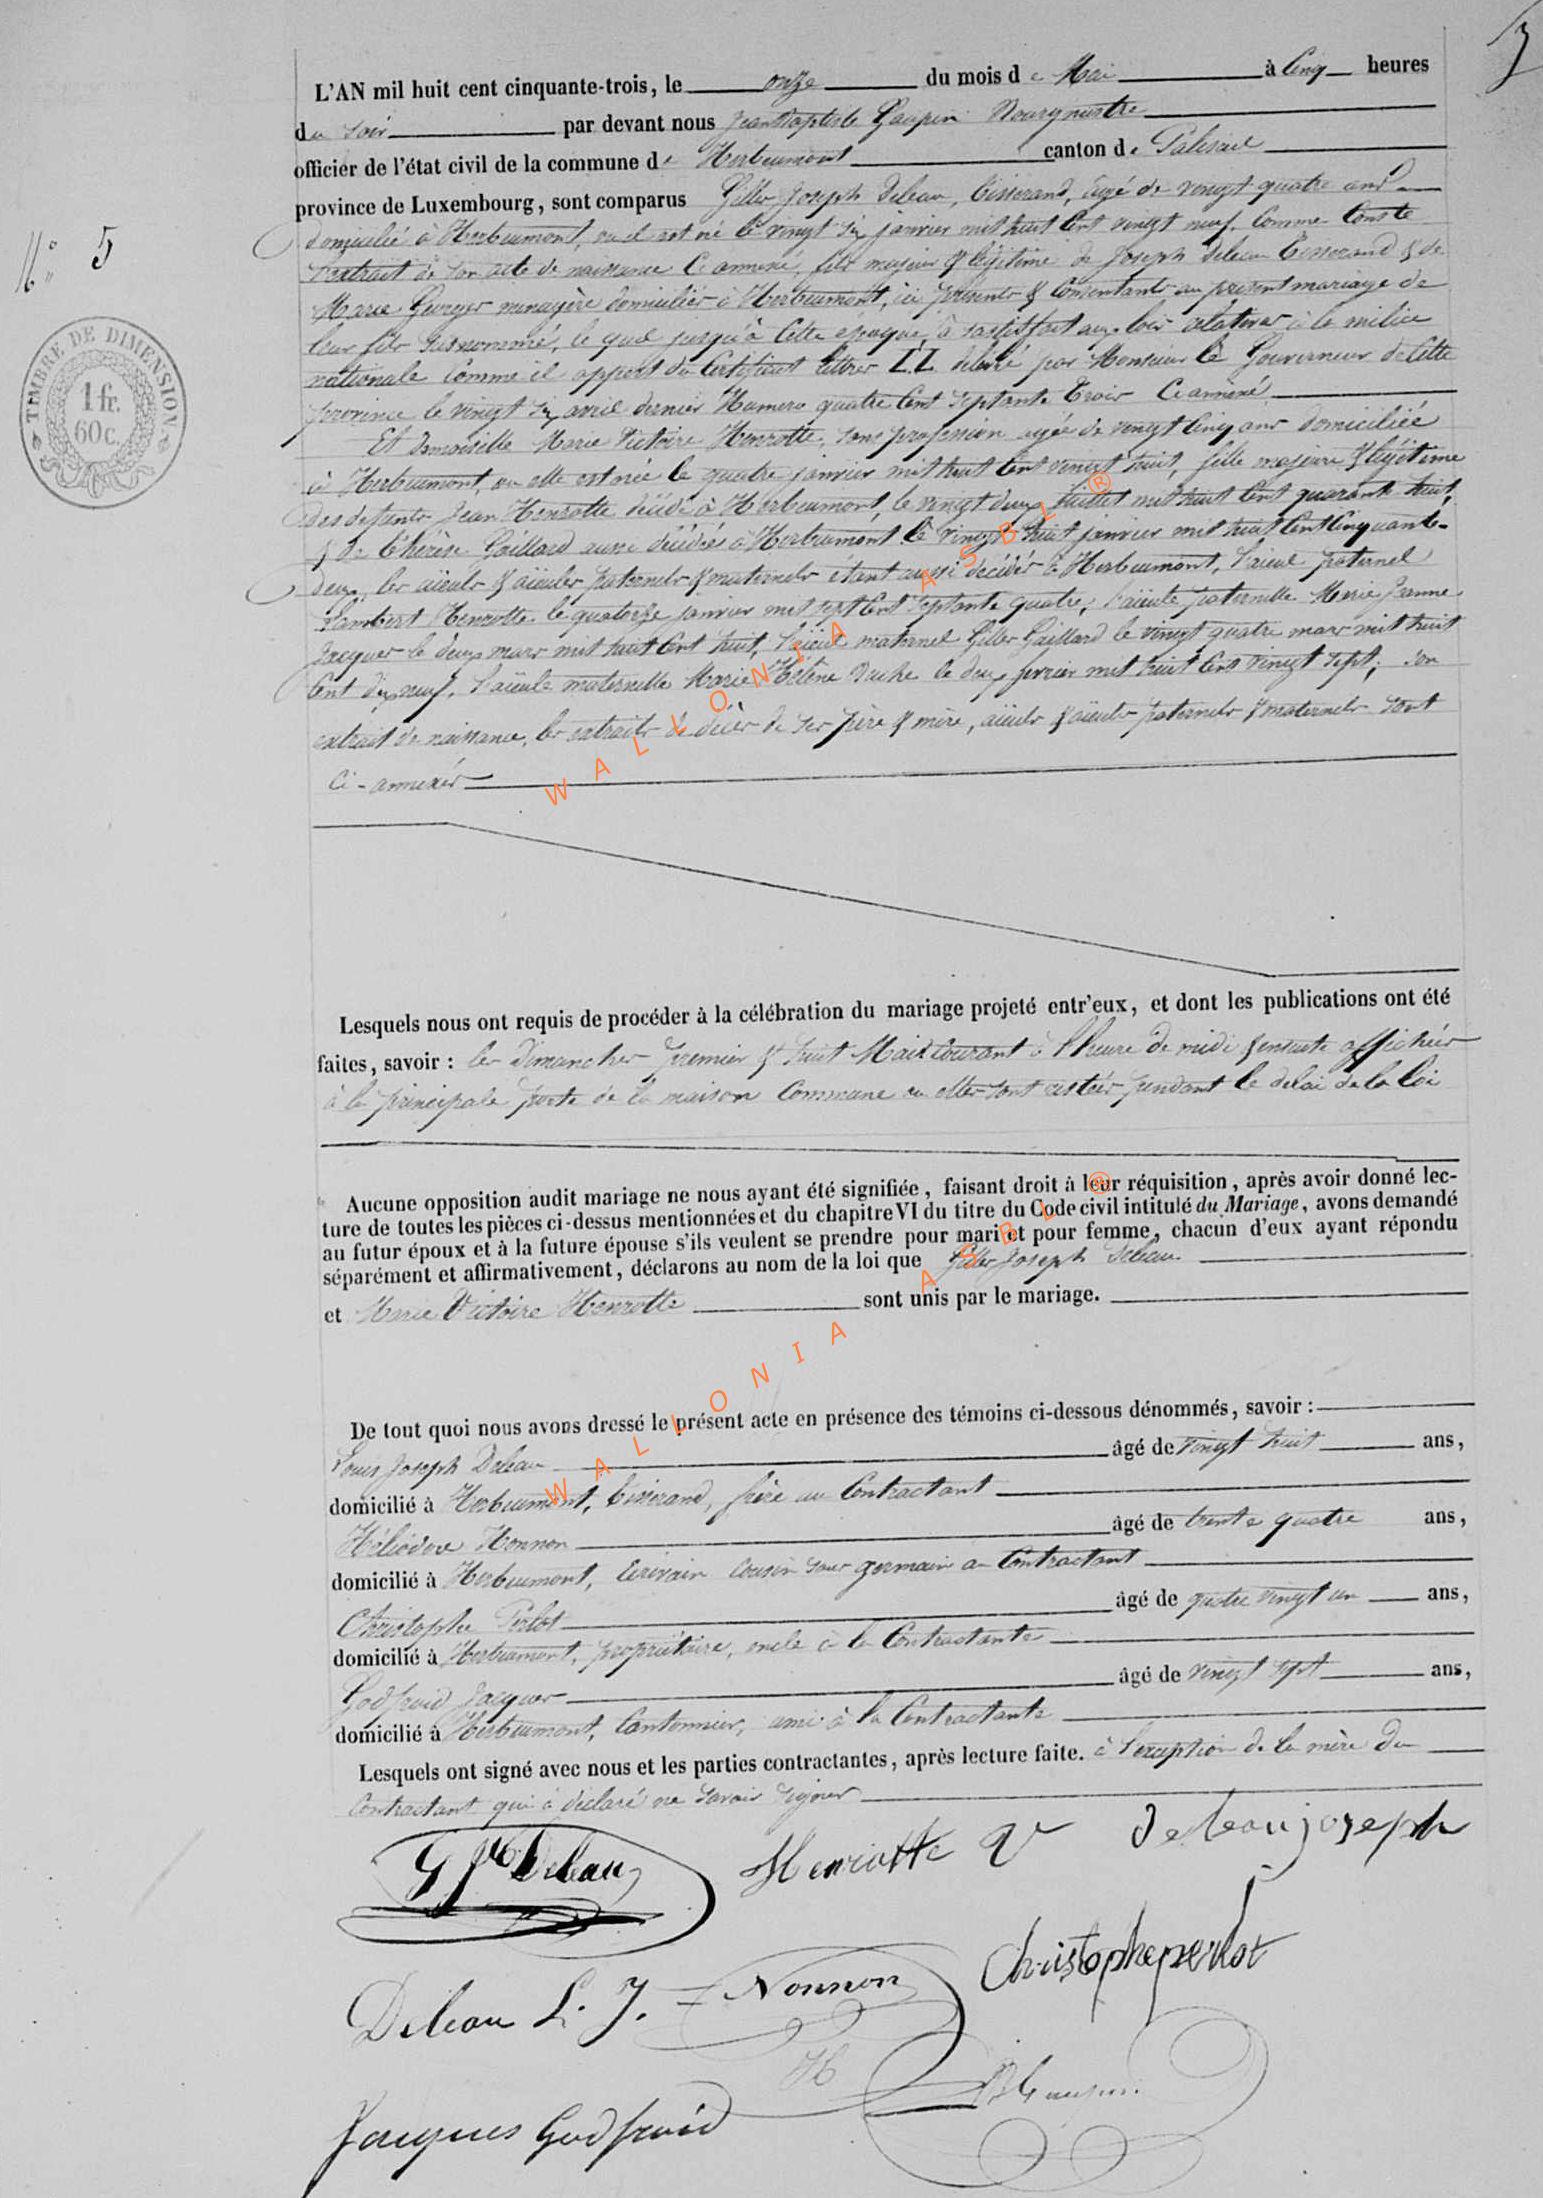 3
L'AN mil huit cent cinquante-trois, le onze du mois de Mai à Cinq heures
du soir par devant nous Jean Baptiste Gaupin Bourgmestre
officier de l'état civil de la commune de Herbeumont canton de Paliseul
province de Luxembourg, sont comparus Gilles Joseph Deleau, tisserand, âgé de vingt quatre ans
N° 5
domicilié à Herbeumont, ou il est né le vingt six janvier mil huit cent vingt neuf, comme conste
l'extrait de son acte de naissance ci annexé, fils majeur & légitime de Joseph Deleau tisserand & de
Marie Georges menagère domiciliés à Herbeumont, ici présents & consentants au présent mariage de
leur fils susnommé, le quel jusqu'à cette époque, à satisfait aux lois relatives à la milice
nationale comme il appert du certificat lettres LL délivré par Monsieur le Gouverneur de cette
province le vingt six avril dernier Numero quatre cent septante trois Ci annexé
TIMBRE DE DIMENSION
1 fr.
60 c.
Et Demoiselle Marie Victoire Henrotte, sans profession agée de vingt cinq ans domiciliée
à Herbeumont, ou elle est née le quatre janvier mil huit cent vingt huit, fille majeure & légitime
des defunts Jean Henrotte décédé à Herbeumont, le vingt deux juillet mil huit cent quarante huit,
& de Thérèse Gaillard aussi décédée à Herbeumont le vingt huit janvier mil huit cent cinquante-
deux, les aïeuls & aïeules paternels & maternels étant aussi décédés à Herbeumont, l'aïeul paternel
Lambert Henrotte le quatorze janvier mil sept cent septante quatre, l'aïeule paternelle Marie Jeanne
Jacques le deux mars mil huit cent huit, l'aïeul maternel Gilles Gaillard le vingt quatre mars mil huit
cent dix neuf, l'aïeule maternelle Marie Hélène le deux fevrier mil huit cent vingt sept, son
extrait de naissance, les extraits de décès de ses père & mère, aïeuls & aïeules paternels & maternels sont
ci-annexés
WALLONIA ASBL ®
Lesquels nous ont requis de procéder à la célébration du mariage projeté entr'eux, et dont les publications ont été
faites, savoir : les dimanches premier & huit Mai courant à l'heure de midi & ensuite affichées
à la principale porte de la maison commune ou elles sont restées pendant le delai de la loi
Aucune opposition audit mariage ne nous ayant été signifiée, faisant droit à leur réquisition, après avoir donné lec-
ture de toutes les pièces ci-dessus mentionnées et du chapitre VI du titre du Code civil intitulé du Mariage, avons demandé
au futur époux et à la future épouse s'ils veulent se prendre pour mari et pour femme, chacun d'eux ayant répondu
séparément et affirmativement, déclarons au nom de la loi que Gilles Joseph Deleau
et Marie Victoire Henrotte sont unis par le mariage.
WALLONIA ASBL ®
De tout quoi nous avons dressé le présent acte en présence des témoins ci-dessous dénommés, savoir :
Louis Joseph Deleau âgé de vingt huit ans,
domicilié à Herbeumont, tisserand, frère au Contractant
Héliodore Nonnon âgé de trente quatre ans,
domicilié à Herbeumont, Ecrivain cousin sous germain au Contractant
Christophe Perlot âgé de quatre vingt un ans,
domicilié à Herbeumont, propriétaire, oncle à la Contractante
Godfroid Jacques âgé de vingt sept ans,
domicilié à Herbeumont, Cantonnier, ami à la Contractante
Lesquels ont signé avec nous et les parties contractantes, après lecture faite. à l'exception de la mère du
Contractant qui à déclaré ne savoir signer
G Jph Deleau Henrotte V deleau joseph
Deleau L. J. Nonnon Christophe perlot
H
JB Gaupin
Jacques Godfroid